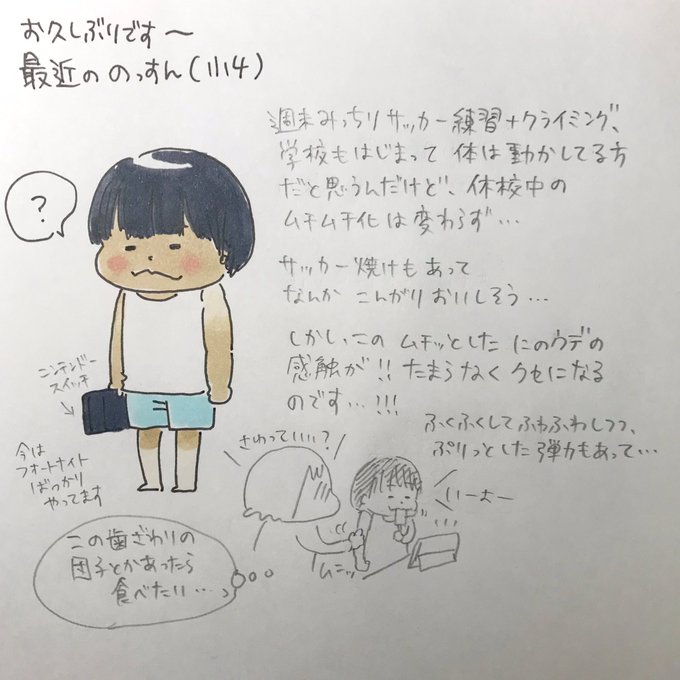 お久しぶりです〜
最近の のっすん(小4)
週末みっちりサッカー練習+クライミング、
学校もはじまって 体は動かしてる方
だと思うんだけど、休校中の
ムチムチ化は変わらず…
?
サッカー焼けもあって
なんか こんがりおいしそう…
しかし、この ムチッとした にのウデの
感触が!! たまらなく クセになる
のです…!!!
ニンテンドー
スイッチ
今は
フォートナイト
ばっかり
やってます
ふくふくして ふわふわしつつ、
ぷりっとした弾力もあって…
さわっていい?
いーよー
ムニッ
この歯ざわりの
団子とかあったら
食べたい…